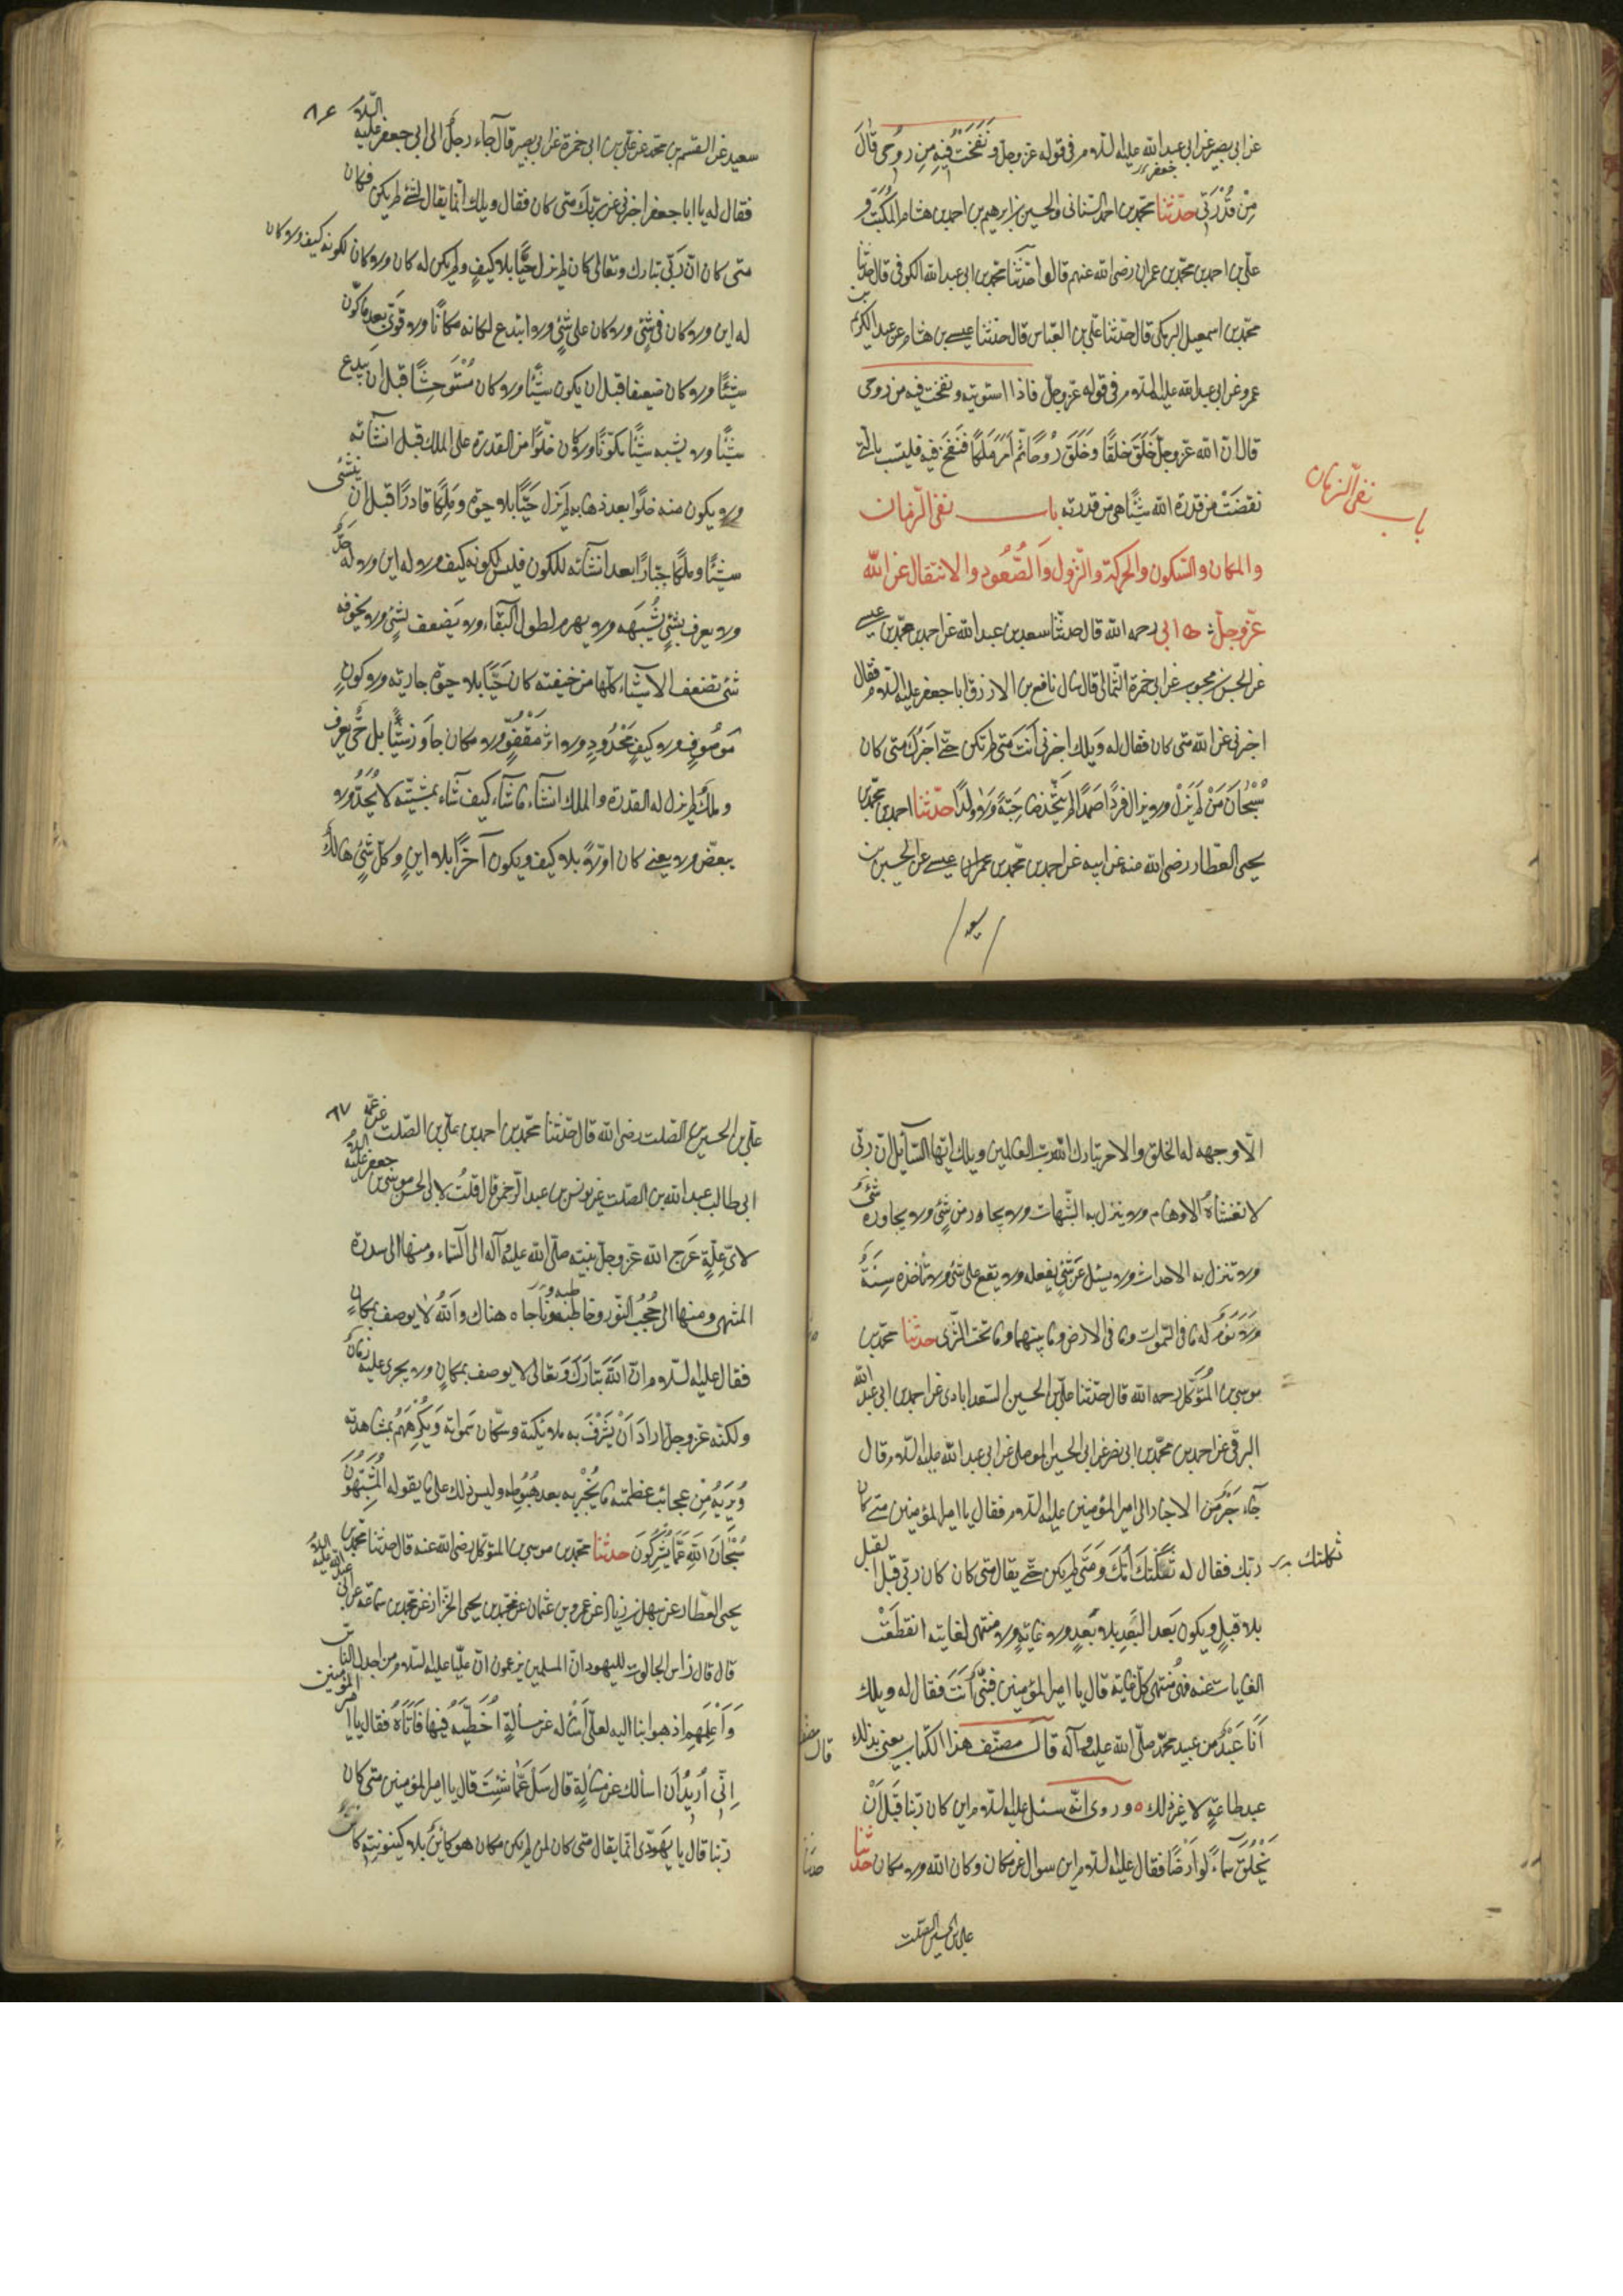 عن ابی بصیر عن ابی عبد الله علیه السلام فی قوله عز وجل وَنَفَخْتُ فِیهِ مِن رُوحِی قال
مِنْ قُدْرَتی حدّثنا محمد بن احمد السنانی والحسین بن ابرهیم بن احمد بن هشام المُكَتِّب و
علی بن احمد بن محمد بن عمران رضی الله عنهم قالوا حدّثنا محمد بن ابی عبد الله الكوفی قال حدثنا
محمد بن اسمعیل البرمكی قال حدثنا علی بن العباس قال حدثنا عیسی بن هشام عن عبد الكریم بن
عمرو عن ابی عبد الله علیه السلام فی قوله عزّ وجلّ فاذا استویته ونفخت فیه من روحی
قال ان الله عزّ وجل خَلَقَ خلقًا وَخَلَقَ رُوحًا ثم اَمَرَ مَلَكًا فَنَفَخَ فیه فلیست بالتی
نقصَتْ من قدرة الله شیئًا هی من قدرته باب نفی الزمان
والمكان والسكون والحركة والنزول وَالصُّعُود والانتقال عن الله
عزّ وجلّ ابی رحمه الله قال حدثنا سعد بن عبد الله عن احمد بن محمد بن عیسی
عن الحسن بن محبوب عن ابی حمزة الثمالی قال سال نافع بن الازرق ابا جعفر علیه السلام فقال
اخبرنی عن الله متی كان فقال له وَیلك اخبرنی اَنتَ متی لم تكن حتی اخبرك متی كان
سُبْحَانَ مَنْ لَمْ یَزَلْ ولا یزال فردًا صَمدًا لم یَتّخذ صَاحِبَةً وَلا ولدًا حدّثنا احمد بن محمد بن
یحیی العطار رضی الله عنه عن ابیه عن احمد بن محمد بن عمران عیسی عن الحسین بن
سعید
باب نفی الزمان
٨٦
سعید عن القسم بن محمد عن علی بن ابی حمزة عن ابی بصیر قال جاء رجلٌ الی ابی جعفر علیه السلام
فقال له یا ابا جعفر اخبرنی عن ربّك متی كان فقال ویلك انّما یقال لشئ لم یكن فكان
متی كان انّ ربّی تبارك وتعالی كان لم یزل حَیًّا بلا كیفٍ ولم یكن له كان ولا كان لكونه كیف ولا كان
له این ولا كان فی شئ ولا كان علی شئ ولا ابتدع لكانه مكانًا ولا قَوِیَ بعد ما كوّن
شیئًا ولا كان ضعیفا قبل ان یكون شیئًا ولا كان مُسْتَوحِشًا قبل ان یبتدع
شیئًا ولا یشبه شیئًا مكوّنًا ولا كان خلوًا من القدرة علی الملك قبل انشائه
ولا یكون منه خلوًا بعد ذهابه لم یَزل حَیًّا بلا حیوة وَمَلِكًا قادرًا قبل ان ینشئ
شیئًا وملكًا جبّارًا بعد انشائه للكون فلیس لكونه كیف ولا له این ولا له حَدٌّ
ولا یعرف بشئٍ یُشبهه ولا یهرم لطول البَقاء ولا یَضعف لشئٍ ولا یخوفه
شئ تضعف الاشیاء كلّها من خیفته كان حَیًّا بلا حیوة حادثة ولا كونٍ
مَوصُوفٍ ولا كیفٍ مَحْدُودٍ ولا اثرٍ مَقْفُوٍّ ولا مكان جاوَزَ شَیئًا بل حیٌّ یعرف
وملك لم یزل له القدرة والملك انشاء ما شاء كیف شاء بمشیّته لا یُحَدُّ ولا
یبعّض ولا یعنی كان اوّلاً بلا كیف ویكون آخرًا بلا این وكلّ شئٍ هالك
الّا وجهه له الخلق والامر تبارك الله ربّ العالمین ویلك ایّها السآئل ان ربّی
لا تغشاهُ الاوهام ولا ینزل به الشّبهات ولا یجار من شئٍ ولا یجاوره شئٌ
ولا تنزل به الاحداث ولا یسئل عَن شئٍ یفعله ولا یقع علی شئ ولا تأخذه سِنَةٌ
وَلا نَومٌ له ما فی السموات وما فی الارض وما بینهما وما تحت الثری حدثنا محمد بن
موسی بن المُتوَكّل رحمه الله قال حدّثنا علیّ بن الحسین السعدابادی عن احمد بن ابی عبد الله
البرقی عن احمد بن محمد بن ابی نصر عن ابی الحسین الموصلی عن ابی عبد الله علیه السلام قال
جآء حَبْرٌ مِن الاحبار الی امیر المؤمنین علیه السلام فقال یا امیر المؤمنین متی كان
ربّك فقال له ثَكَلَتكَ اُمّكَ وَمَتَی لم یكن حتی یقال متی كان كان ربّی قبل القبل
بلا قبلٍ ویكون بَعد البَعدِ بلا بَعدٍ ولا غایةٍ ولا منتهی لغایته انقطعَتْ
الغایات عنه فهو مُنتهی كلّ غایة قال یا امیر المؤمنین فنبیٌّ اَنتَ فقال له ویلك
اَنا عَبْدٌ من عبید محمد صلّی الله علیه وآله قال مصنّف هذا الكتاب یعنی بذلك
عبد طاعةٍ لا غیر ذلك ٥ وروی انّه سئل علیه السلام این كان ربّنا قبل اَنْ
یَخْلُقَ سَماءً اَو اَرْضًا فقال علیه السلام این سوال عن مكان وكان الله ولا مكان حدثنا
علی بن الحسین الصلت
ثكلتك
٨٧
علی بن الحسین بن الصلت رضی الله قال حدّثنا محمد بن احمد بن علی بن الصّلت عن عمه
ابی طالب عبد الله بن الصّلت عن یونس بن عبد الرحمن قال قلتُ لابی الحسن موسی بن جعفر علیه السلام
لایّ عِلّةٍ عَرَج الله عزّ وجلّ بنبیّه صلّی الله علیه وآله الی السّماء ومنها الی سدرة
المنتهی ومنها الی حُجُب النّور وخاطبه وناجاه هناك وَاللهُ لا یوصف بمكانٍ
فقال علیه السلام انّ اللهَ تبَارَكَ وَتعالی لا یوصف بمكانٍ ولا یجری علیه زمان
ولكنّه عزّ وجل ارادَ اَنْ یُشَرِّفَ به ملائكته وسكّان سَمواته وَیُكْرِمَهُمْ بمشاهدته
وَیُرِیَهُ مِن عجائب عظمته ما یُخْبِرُ به بعد هُبُوطِه ولیس ذلك علی ما یقوله المُشَبِّهُونَ
سُبْحَانَ اللهِ عَمّا یُشْرِكُونَ حدثنا محمد بن موسی بن المتوكل رضی الله عنه قال حدثنا محمد بن
یحیی العطّار عن سهل بن زیاد عن عمرو بن عثمان عن محمد بن یحیی الخزاز عن محمد بن سماعة عن ابی عبد الله علیه السلام
قال قال رأس الجالوت للیهود انّ المسلمین یزعمون انّ علیًّا علیه السلام من اجدل النّاس
وَاَعْلَمِهِم اذهبوا بنا الیه لعلّی اَسْأَله عن مسألةٍ اُخَطِّئُهُ فیها فَاَتَاهُ فقال یا امیر المؤمنین
اِنّی اُریدُ اَن اسألك عن مسألةٍ قال سَلْ عَمّا شئتَ قال یا امیر المؤمنین متی كان
ربّنا قال یا یَهودیّ انّما یقال متی كان لمن لم یكن فكان هو كائنٌ بلا كینونةِ كائنٍ